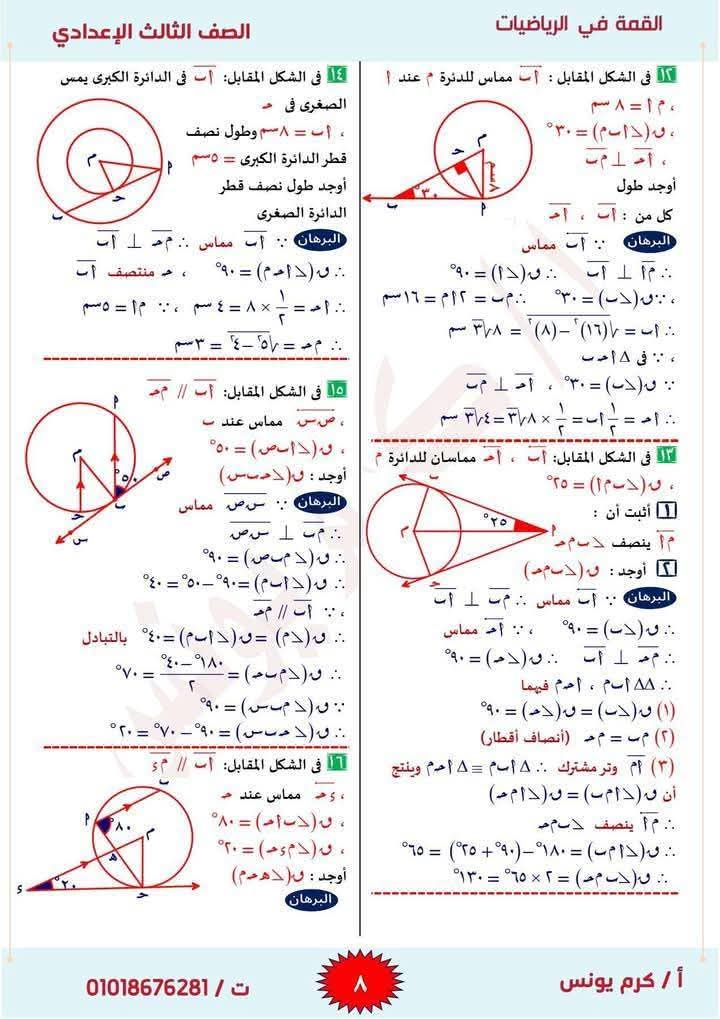 القمة في الرياضيات
الصف الثالث الإعدادي
١٢ فى الشكل المقابل : أب مماس للدئرة م عند أ
، م أ = ٨ سم
، ق(∠ أ ب م) = ٣٠°
، أحـ ⊥ م ب
أوجد طول
كل من : أب ، أحـ
م
حـ
٨سم
٣٠°
ب
أ
البرهان ∵ أب مماس
∴ م أ ⊥ أب ∴ ق(∠ أ) = ٩٠°
، ∵ ق(∠ ب) = ٣٠° ∴ م ب = ٢ أ م = ١٦ سم
∴ أب = √(١٦)² – (٨)² = ٨√٣ سم
، ∵ فى Δ أ حـ ب
∵ ق(∠ ب) = ٣٠° ، أحـ ⊥ م ب
∴ أحـ = ١/٢ أب = ١/٢ × ٨√٣ = ٤√٣ سم
١٣ فى الشكل المقابل: أب ، أحـ مماسان للدائرة م
، ق(∠ ب م أ) = ٢٥°
١ أثبت أن :
م أ ينصف ∠ ب م حـ
٢ أوجد : ق(∠ ب م حـ)
ب
٢٥°
أ
م
حـ
البرهان ∵ أب مماس ∴ م ب ⊥ أب
∴ ق(∠ ب) = ٩٠° ، ∵ أحـ مماس
∴ م حـ ⊥ أب ∴ ق(∠ حـ) = ٩٠°
∴ ΔΔ أ ب م ، أ حـ م فيهما
(١) ق(∠ ب) = ق(∠ حـ) = ٩٠°
(٢) م ب = م حـ (أنصاف أقطار)
(٣) أم وتر مشترك ∴ Δ أ ب م ≡ Δ أ حـ م وينتج
أن ق(∠ أ م ب) = ق(∠ أ م حـ)
∴ م أ ينصف ∠ ب م حـ
∴ ق(∠ أ م ب) = ١٨٠° – (٩٠° + ٢٥°) = ٦٥°
∴ ق(∠ ب م حـ) = ٢ × ٦٥° = ١٣٠°
١٤ فى الشكل المقابل: أب فى الدائرة الكبرى يمس
الصغرى فى حـ
، أب = ٨سم وطول نصف
قطر الدائرة الكبرى = ٥سم
أوجد طول نصف قطر
الدائرة الصغرى
م
أ
حـ
ب
البرهان ∵ أب مماس ∴ م حـ ⊥ أب
∴ ق(∠ أ حـ م) = ٩٠° ، حـ منتصف أب
∴ أحـ = ١/٢ × ٨ = ٤ سم ، ∵ م أ = ٥سم
∴ م حـ = √٥² – ٤² = ٣سم
١٥ فى الشكل المقابل: أب // م حـ
، ص س مماس عند ب
، ق(∠ أ ب ص) = ٥٠°
أوجد : ق(∠ حـ ب س)
أ
م
٥٠°
ص
ب
حـ
س
البرهان ∵ س ص مماس
∴ م ب ⊥ س ص
∴ ق(∠ م ب ص) = ٩٠°
∴ ق(∠ أ ب م) = ٩٠° – ٥٠° = ٤٠°
، ∵ أب // م حـ
∴ ق(∠ م) = ق(∠ أ ب م) = ٤٠° بالتبادل
∴ ق(∠ م ب حـ) = ١٨٠° – ٤٠° / ٢ = ٧٠°
∵ ق(∠ م ب س) = ٩٠°
∴ ق(∠ حـ ب س) = ٩٠° – ٧٠° = ٢٠°
١٦ فى الشكل المقابل: أب // م ء
، ء حـ مماس عند حـ
، ق(∠ ب أ حـ) = ٨٠°
، ق(∠ م ء حـ) = ٢٠°
أوجد : ق(∠ هـ حـ م)
ب
أ
٨٠°
م
هـ
٢٠°
ء
حـ
البرهان
أ / كرم يونس
٨
ت / 01018676281